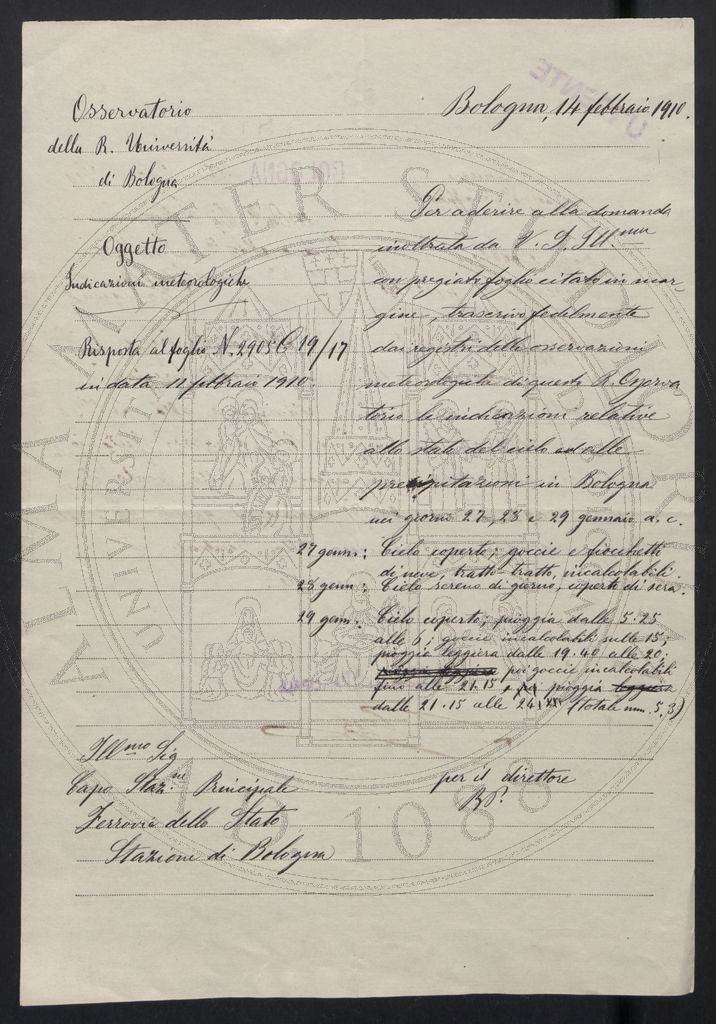 Osservatorio
della R. Università
di Bologna
Bologna, 14 febbraio 1910.
Oggetto
Indicazioni meteorologiche
Risposta al foglio N. 2905 C 19/17
in data 11 febbraio 1910
Per aderire alla domanda
inoltrata da V. S. Ill.ma
con pregiato foglio citato in mar-
gine, trascrivo fedelmente
dai registri delle osservazioni
meteorologiche di questo R. Osserva
torio le indicazioni relative
allo stato del cielo ed alle
precipitazioni in Bologna
nei giorni 27, 28 e 29 gennaio a. c.
27 genn: Cielo coperto; goccie e fiocchetti
di neve, tratto-tratto, incalcolabili
28 genn: Cielo sereno di giorno, coperto di sera.
29 genn: Cielo coperto; pioggia dalle 5.25
alle 6; goccie incalcolabili sulle 15;
pioggia leggiera dalle 19.40 alle 20;
poi goccie incalcolabili
fino alle 21.15, pioggia leggiera
dalle 21.15 alle 24 (totale mm. 5,3)
Ill.mo Sig
Capo Staz.ne Principale
Ferrovia dello Stato
Stazione di Bologna
per il direttore
RP.
ALMA MATER STUDIORUM
UNIVERSITÀ
A.D. 1088
BOLOGNA
UTENTE